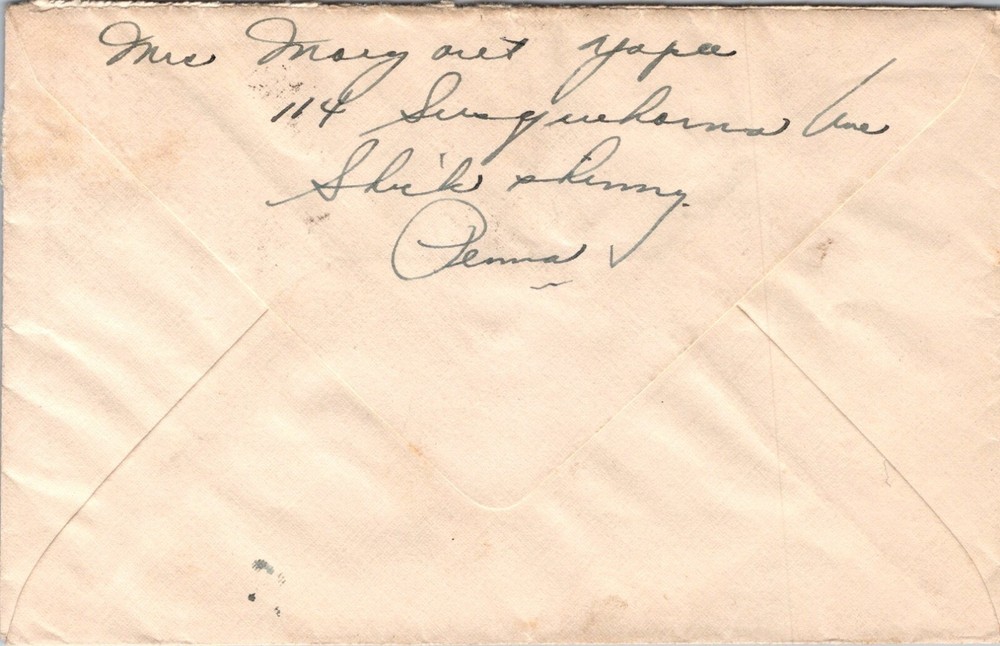 Mrs Margaret Yape
114 Susquehanna Ave
Shickshinny
Penna